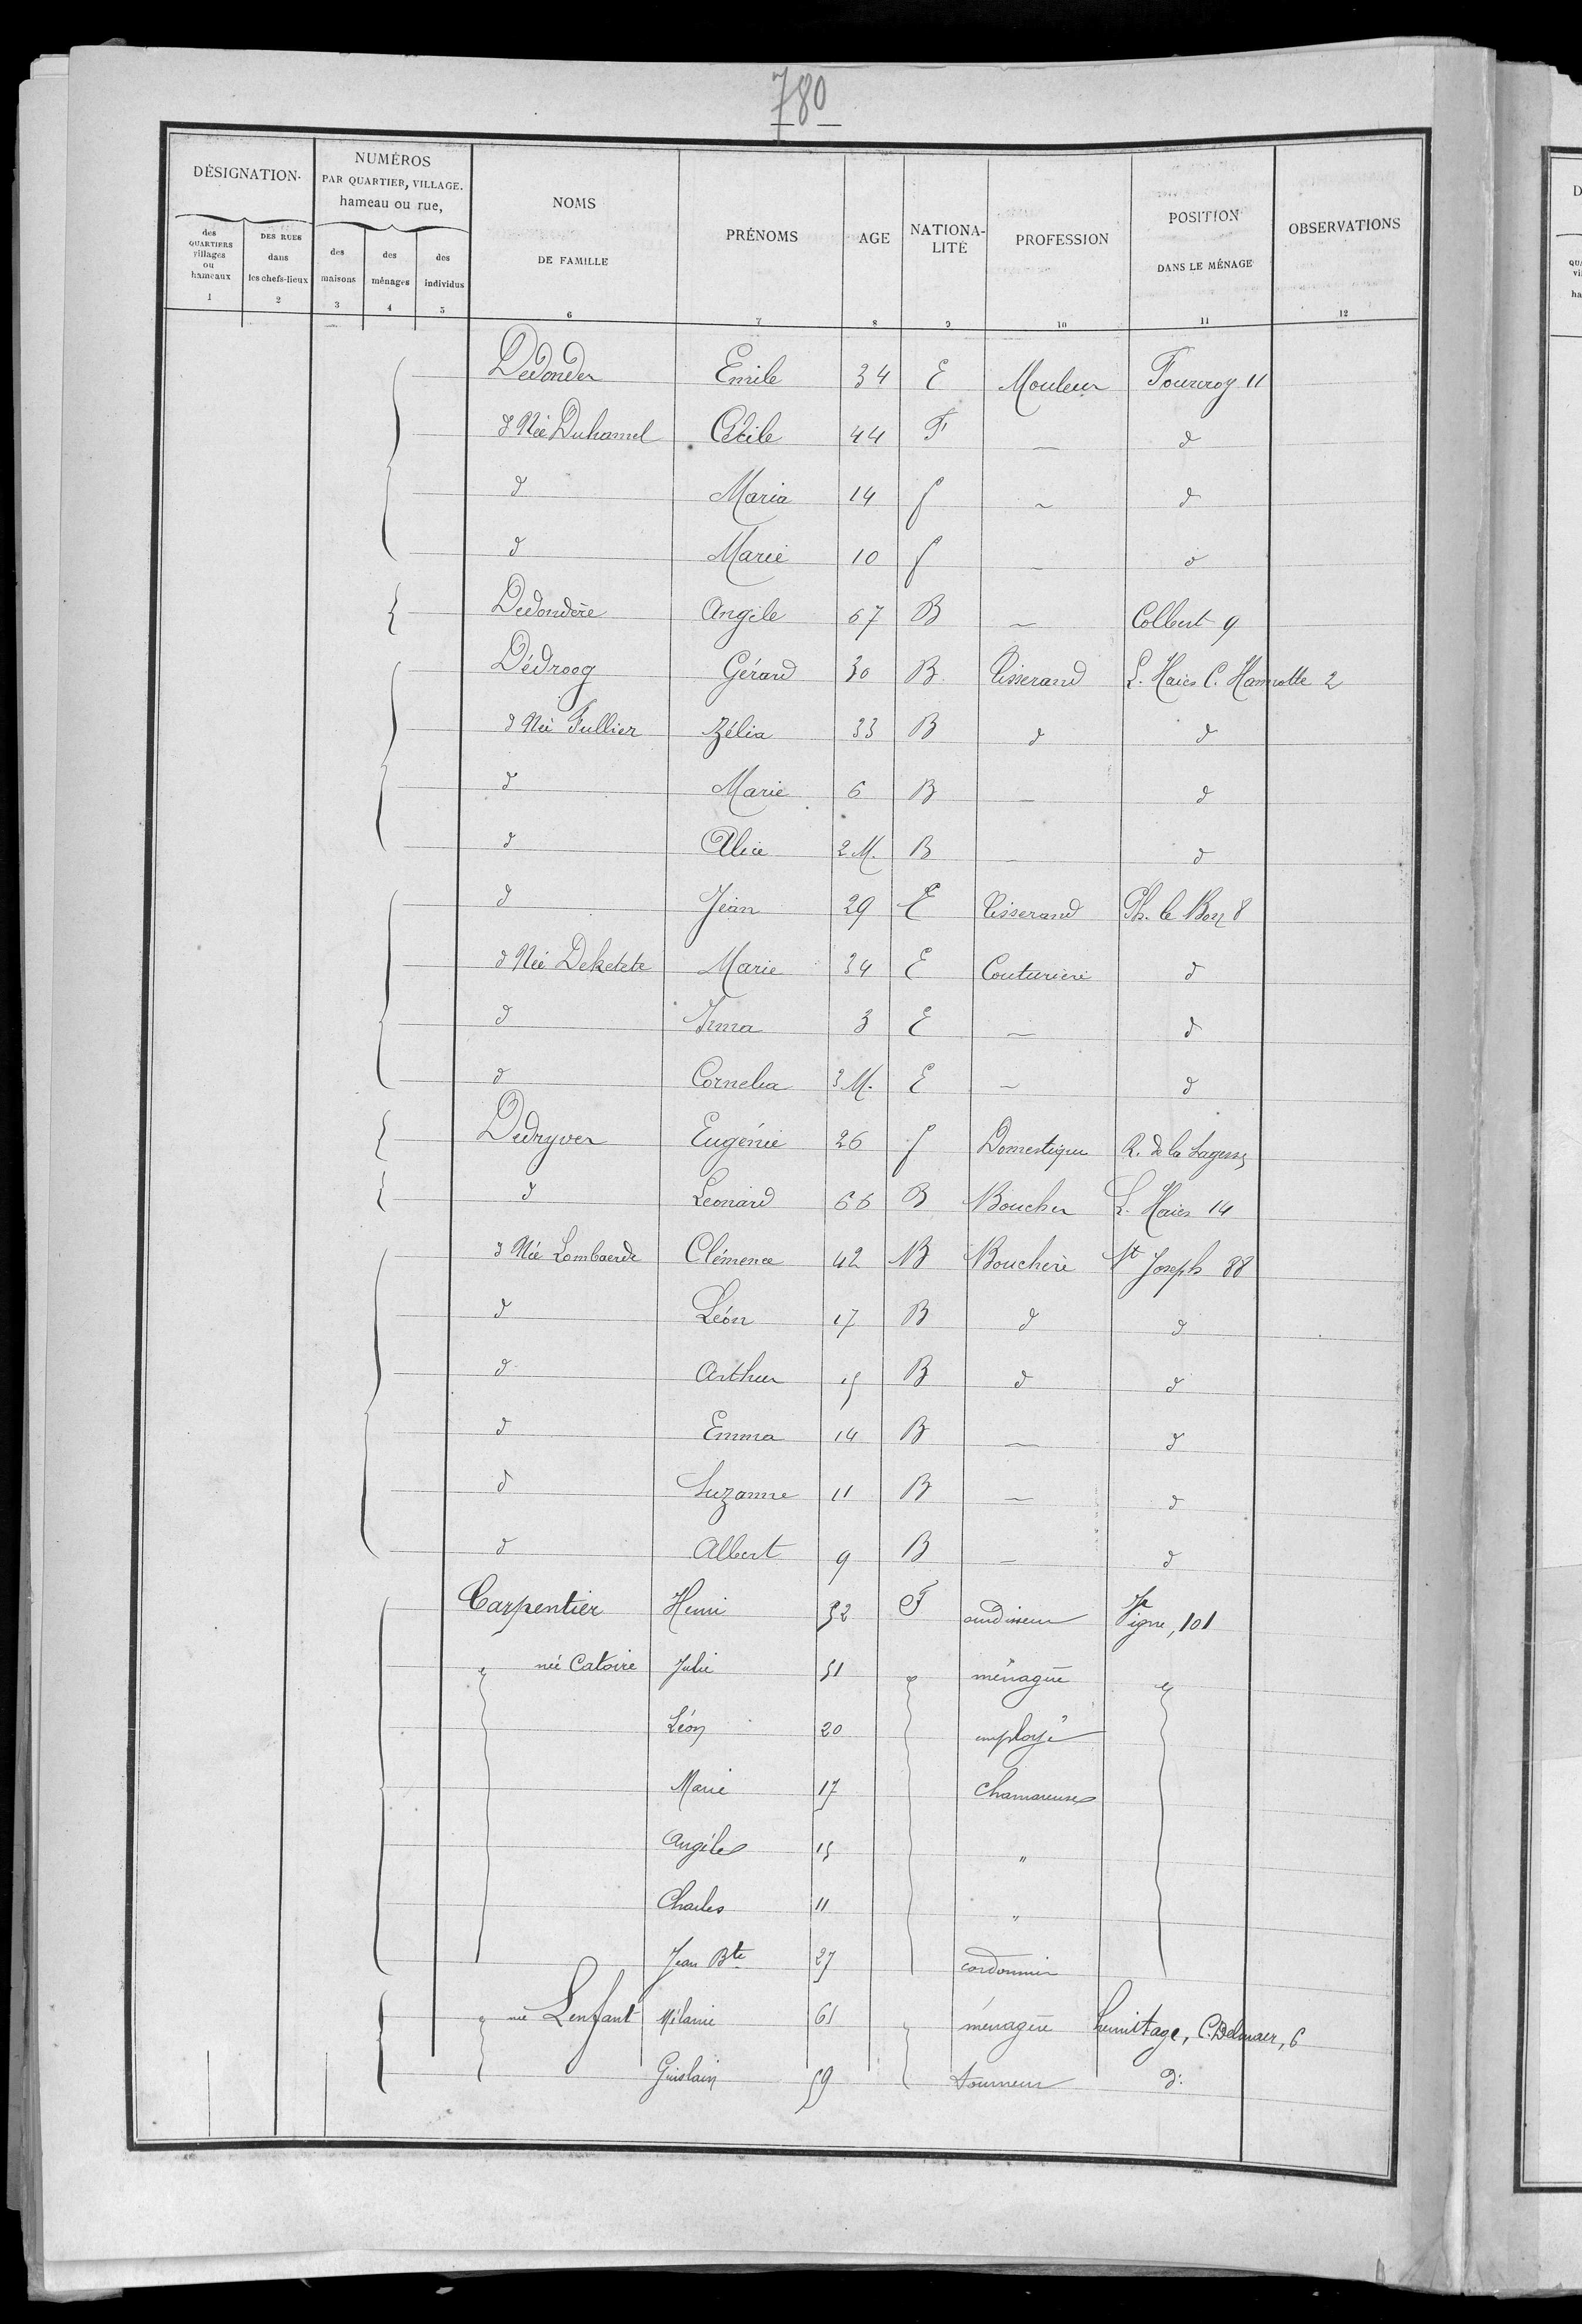 780
DÉSIGNATION. NUMÉROS PAR QUARTIER, VILLAGE. hameau ou rue, NOMS DE FAMILLE PRÉNOMS AGE NATIONA-LITÉ PROFESSION POSITION DANS LE MÉNAGE OBSERVATIONS
des QUARTIERS villages ou hameaux DES RUES dans les chefs-lieux des maisons des ménages des individus
1 2 3 4 5 6 7 8 9 10 11 12
Dedonder Emile 34 E Mouleur Fourcroy 11
d Née Duhamel Cécile 44 F — d
d Maria 14 f — d
d Marie 10 f — d
Dedondère Angèle 67 B — Colbert 9
Dédroog Gérard 30 B Tisserand L. Haies C. Hannotte 2
d Née Tullier Zélia 33 B d d
d Marie 6 B — d
d Alice 2 M. B — d
d Jean 29 E Tisserand Ph. le Bon 8
d Née Deketete Marie 34 E Couturière d
d Irma 3 E — d
d Cornelia 3 M. E — d
Dedryver Eugénie 26 f Domestique R. de la Sagesse
d Leonard 66 B Boucher L. Haies 14
d Née Lombaerde Clémence 42 B Bouchère St Joseph 88
d Léon 17 B d d
d Arthur 15 B d d
d Emma 14 B — d
d Suzanne 11 B — d
d Albert 9 B — d
Carpentier Henri 52 F ourdisseur Vigne, 101
née Catoire Julie 51 ménagère
Léon 20 employé
Marie 17 chamareuse
Angèle 15 "
Charles 11 "
Jean Bte 27 cordonnier
née Lenfant Mélanie 61 ménagère hermitage, C. Delmaer, 6
Guislain 59 tourneur d: